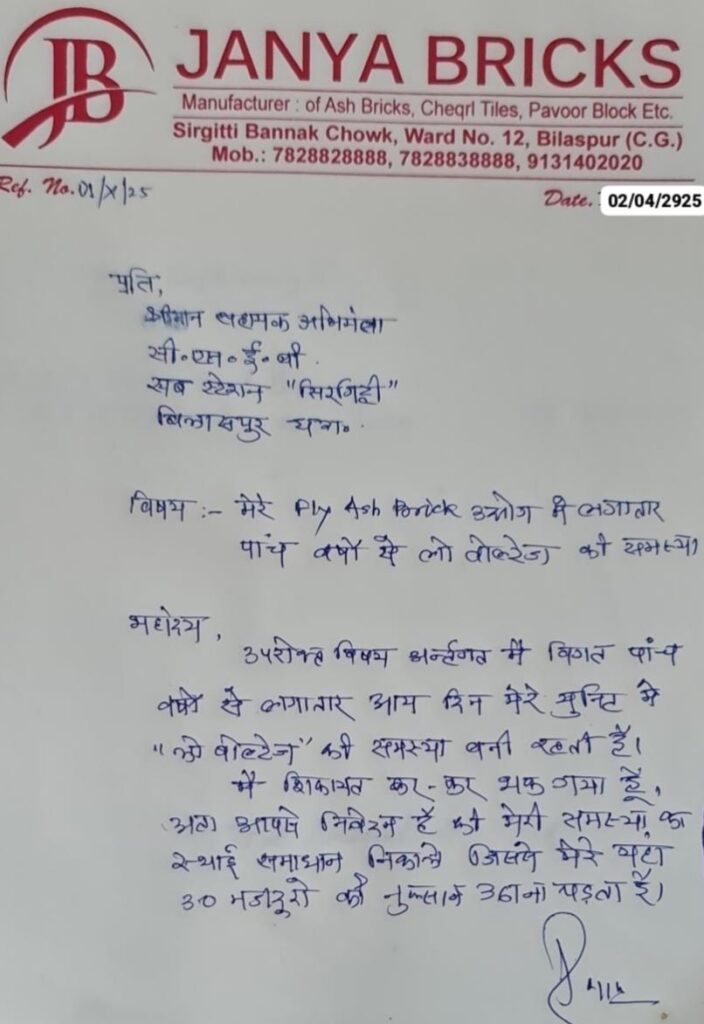 JB
JANYA BRICKS
Manufacturer : of Ash Bricks, Cheqrl Tiles, Pavoor Block Etc.
Sirgitti Bannak Chowk, Ward No. 12, Bilaspur (C.G.)
Mob.: 7828828888, 7828838888, 9131402020
Ref. No. 01/X/25
Date. 02/04/2925
प्रति,
श्रीमान सहायक अभियंता
सी॰एस॰ई॰बी
सब स्टेशन "सिरगिट्टी"
बिलासपुर
विषय :- मेरे Fly Ash Brick उद्योग में लगातार
पांच वर्षो से लो वोल्टेज की समस्या
महोदय,
उपरोक्त विषय अर्न्तगत मै विगत पांच
वर्षो से लगातार आय दिन मेरे युनिट मे
"लो वोल्टेज" की समस्या बनी रहती है।
मै शिकायत कर-कर थक गया हूँ,
अतः आपसे निवेदन है की मेरी समस्या का
स्थाई समाधान निकाले जिससे मेरे यहां
30 मजदूरो को नुकसान उठाना पड़ता है।